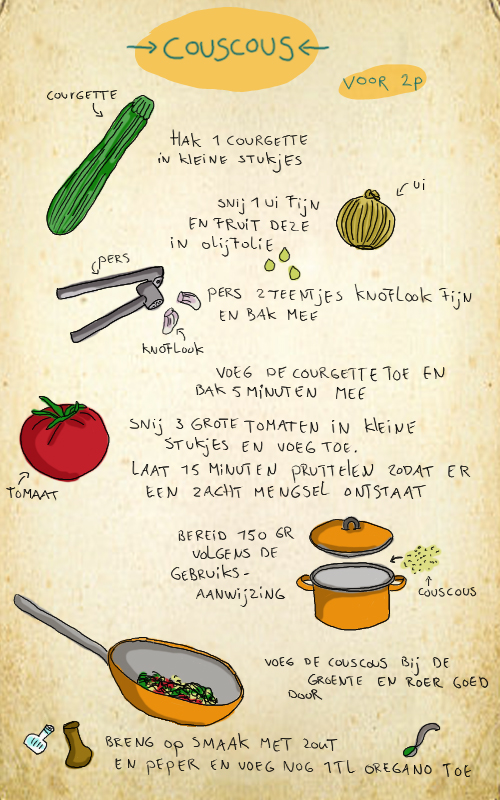 COUSCOUS
VOOR 2P
COURGETTE
HAK 1 COURGETTE
in kleine stukjes
ui
snij 1 ui fijn
EN FRUIT DEZE
in olijfolie
PERS
PERS 2 TEENTJES KNOFLOOK FIJN
EN BAK MEE
KNOFLOOK
VOEG DE COURGETTE TOE EN
BAK 5 MINUTEN MEE
SNIJ 3 GROTE TOMATEN IN KLEINE
STUKJES EN VOEG TOE.
LAAT 15 MINUTEN PRUTTELEN ZODAT ER
EEN ZACHT MENGSEL ONTSTAAT
TOMAAT
BEREID 150 GR
VOLGENS DE
GEBRUIKS-
AANWIJZING
COUSCOUS
VOEG DE COUSCOUS BIJ DE
GROENTE EN ROER GOED
DOOR
BRENG OP SMAAK MET ZOUT
EN PEPER EN VOEG NOG 1TL OREGANO TOE